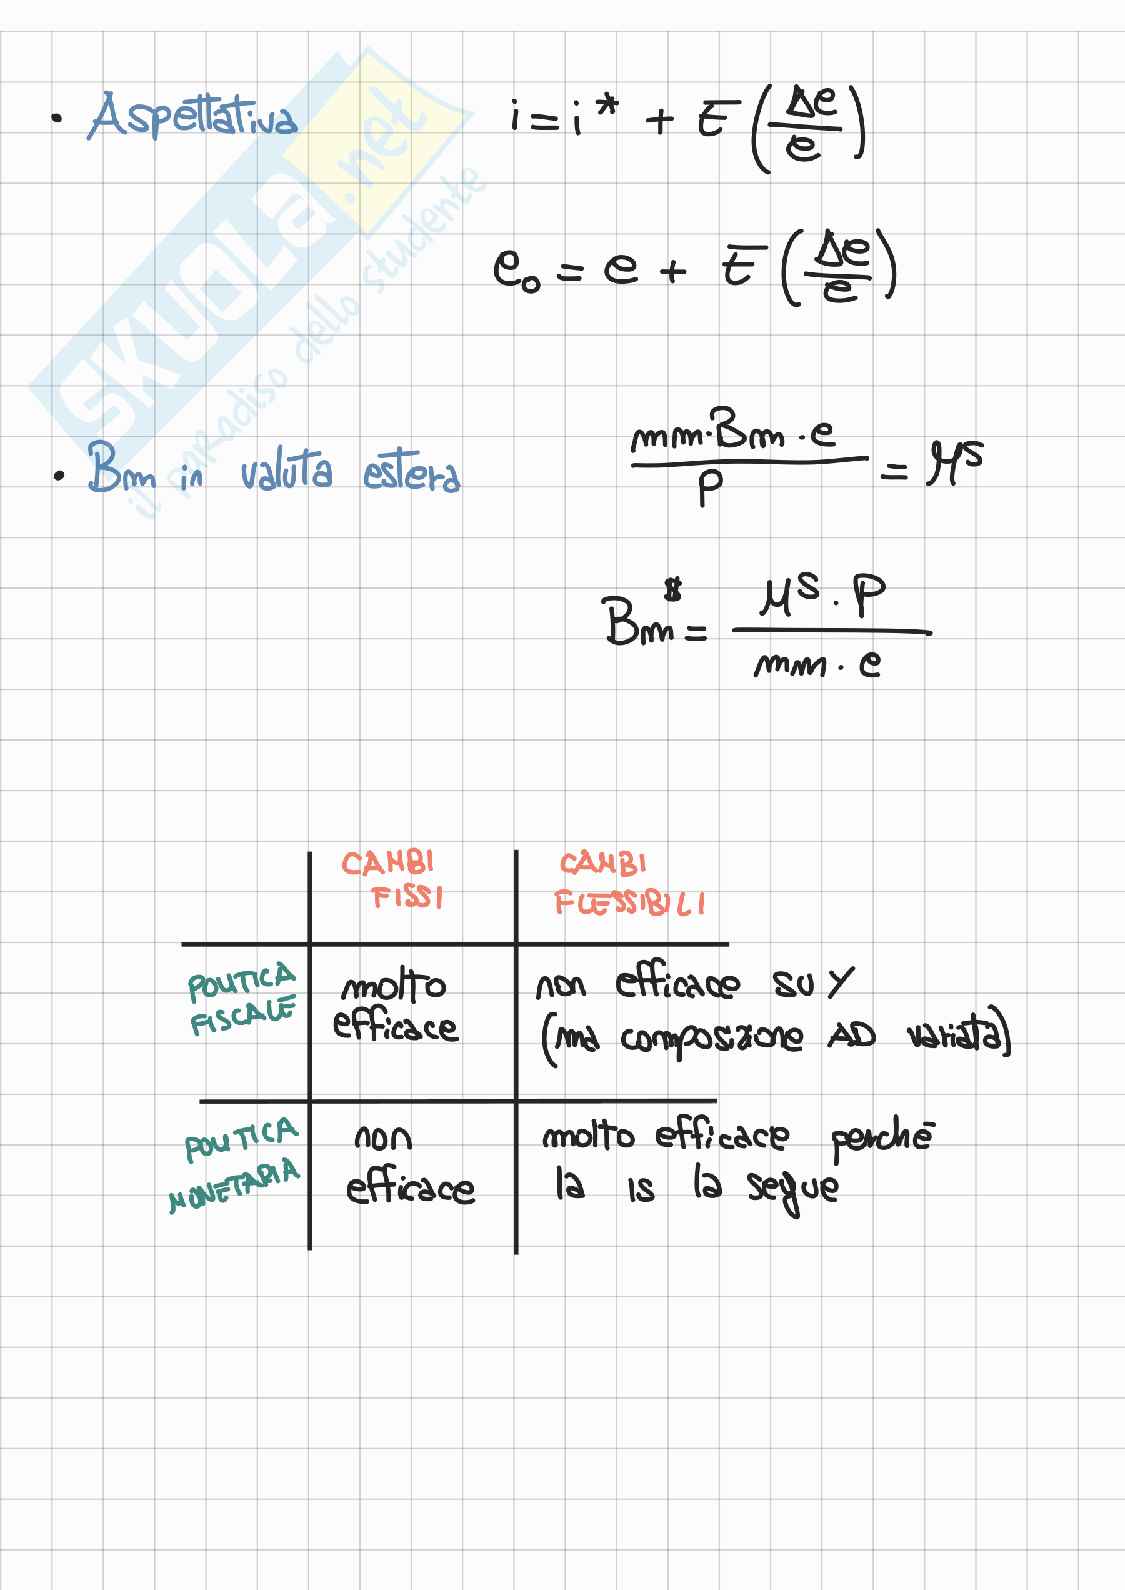 • Aspettativa i = i* + E (Δe/e)
e₀ = e + E (Δe/e)
• Bm in valuta estera mm·Bm·e / P = Mˢ
Bm$ = Mˢ·P / mm·e
CAMBI FISSI
CAMBI FLESSIBILI
POLITICA FISCALE
molto efficace
non efficace su Y
(ma composizione AD variata)
POLITICA MONETARIA
non efficace
molto efficace perchè
la is la segue
SKUOLA.net
il paradiso dello studente